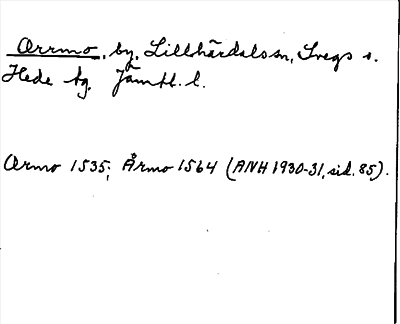 Orrmo, by, Lillhärdals sn, Svegs o.
Hede tg. Jämtl. l.
Ormo 1535; Årmo 1564 (ANH 1930-31, sid. 85).